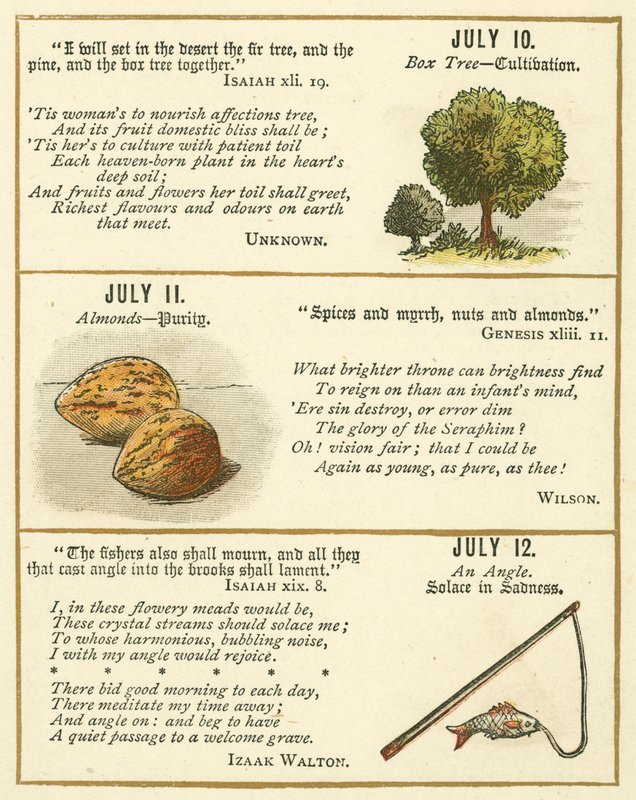 "I will set in the desert the fir tree, and the
pine, and the box tree together."
ISAIAH xli. 19.
'Tis woman's to nourish affections tree,
And its fruit domestic bliss shall be;
'Tis her's to culture with patient toil
Each heaven-born plant in the heart's
deep soil;
And fruits and flowers her toil shall greet,
Richest flavours and odours on earth
that meet.
UNKNOWN.
JULY 10.
Box Tree—Cultivation.
JULY 11.
Almonds—Purity.
"Spices and myrrh, nuts and almonds."
GENESIS xliii. 11.
What brighter throne can brightness find
To reign on than an infant's mind,
'Ere sin destroy, or error dim
The glory of the Seraphim?
Oh! vision fair; that I could be
Again as young, as pure, as thee!
WILSON.
"The fishers also shall mourn, and all they
that cast angle into the brooks shall lament."
ISAIAH xix. 8.
I, in these flowery meads would be,
These crystal streams should solace me;
To whose harmonious, bubbling noise,
I with my angle would rejoice.
* * * * * *
There bid good morning to each day,
There meditate my time away;
And angle on: and beg to have
A quiet passage to a welcome grave.
IZAAK WALTON.
JULY 12.
An Angle.
Solace in Sadness.